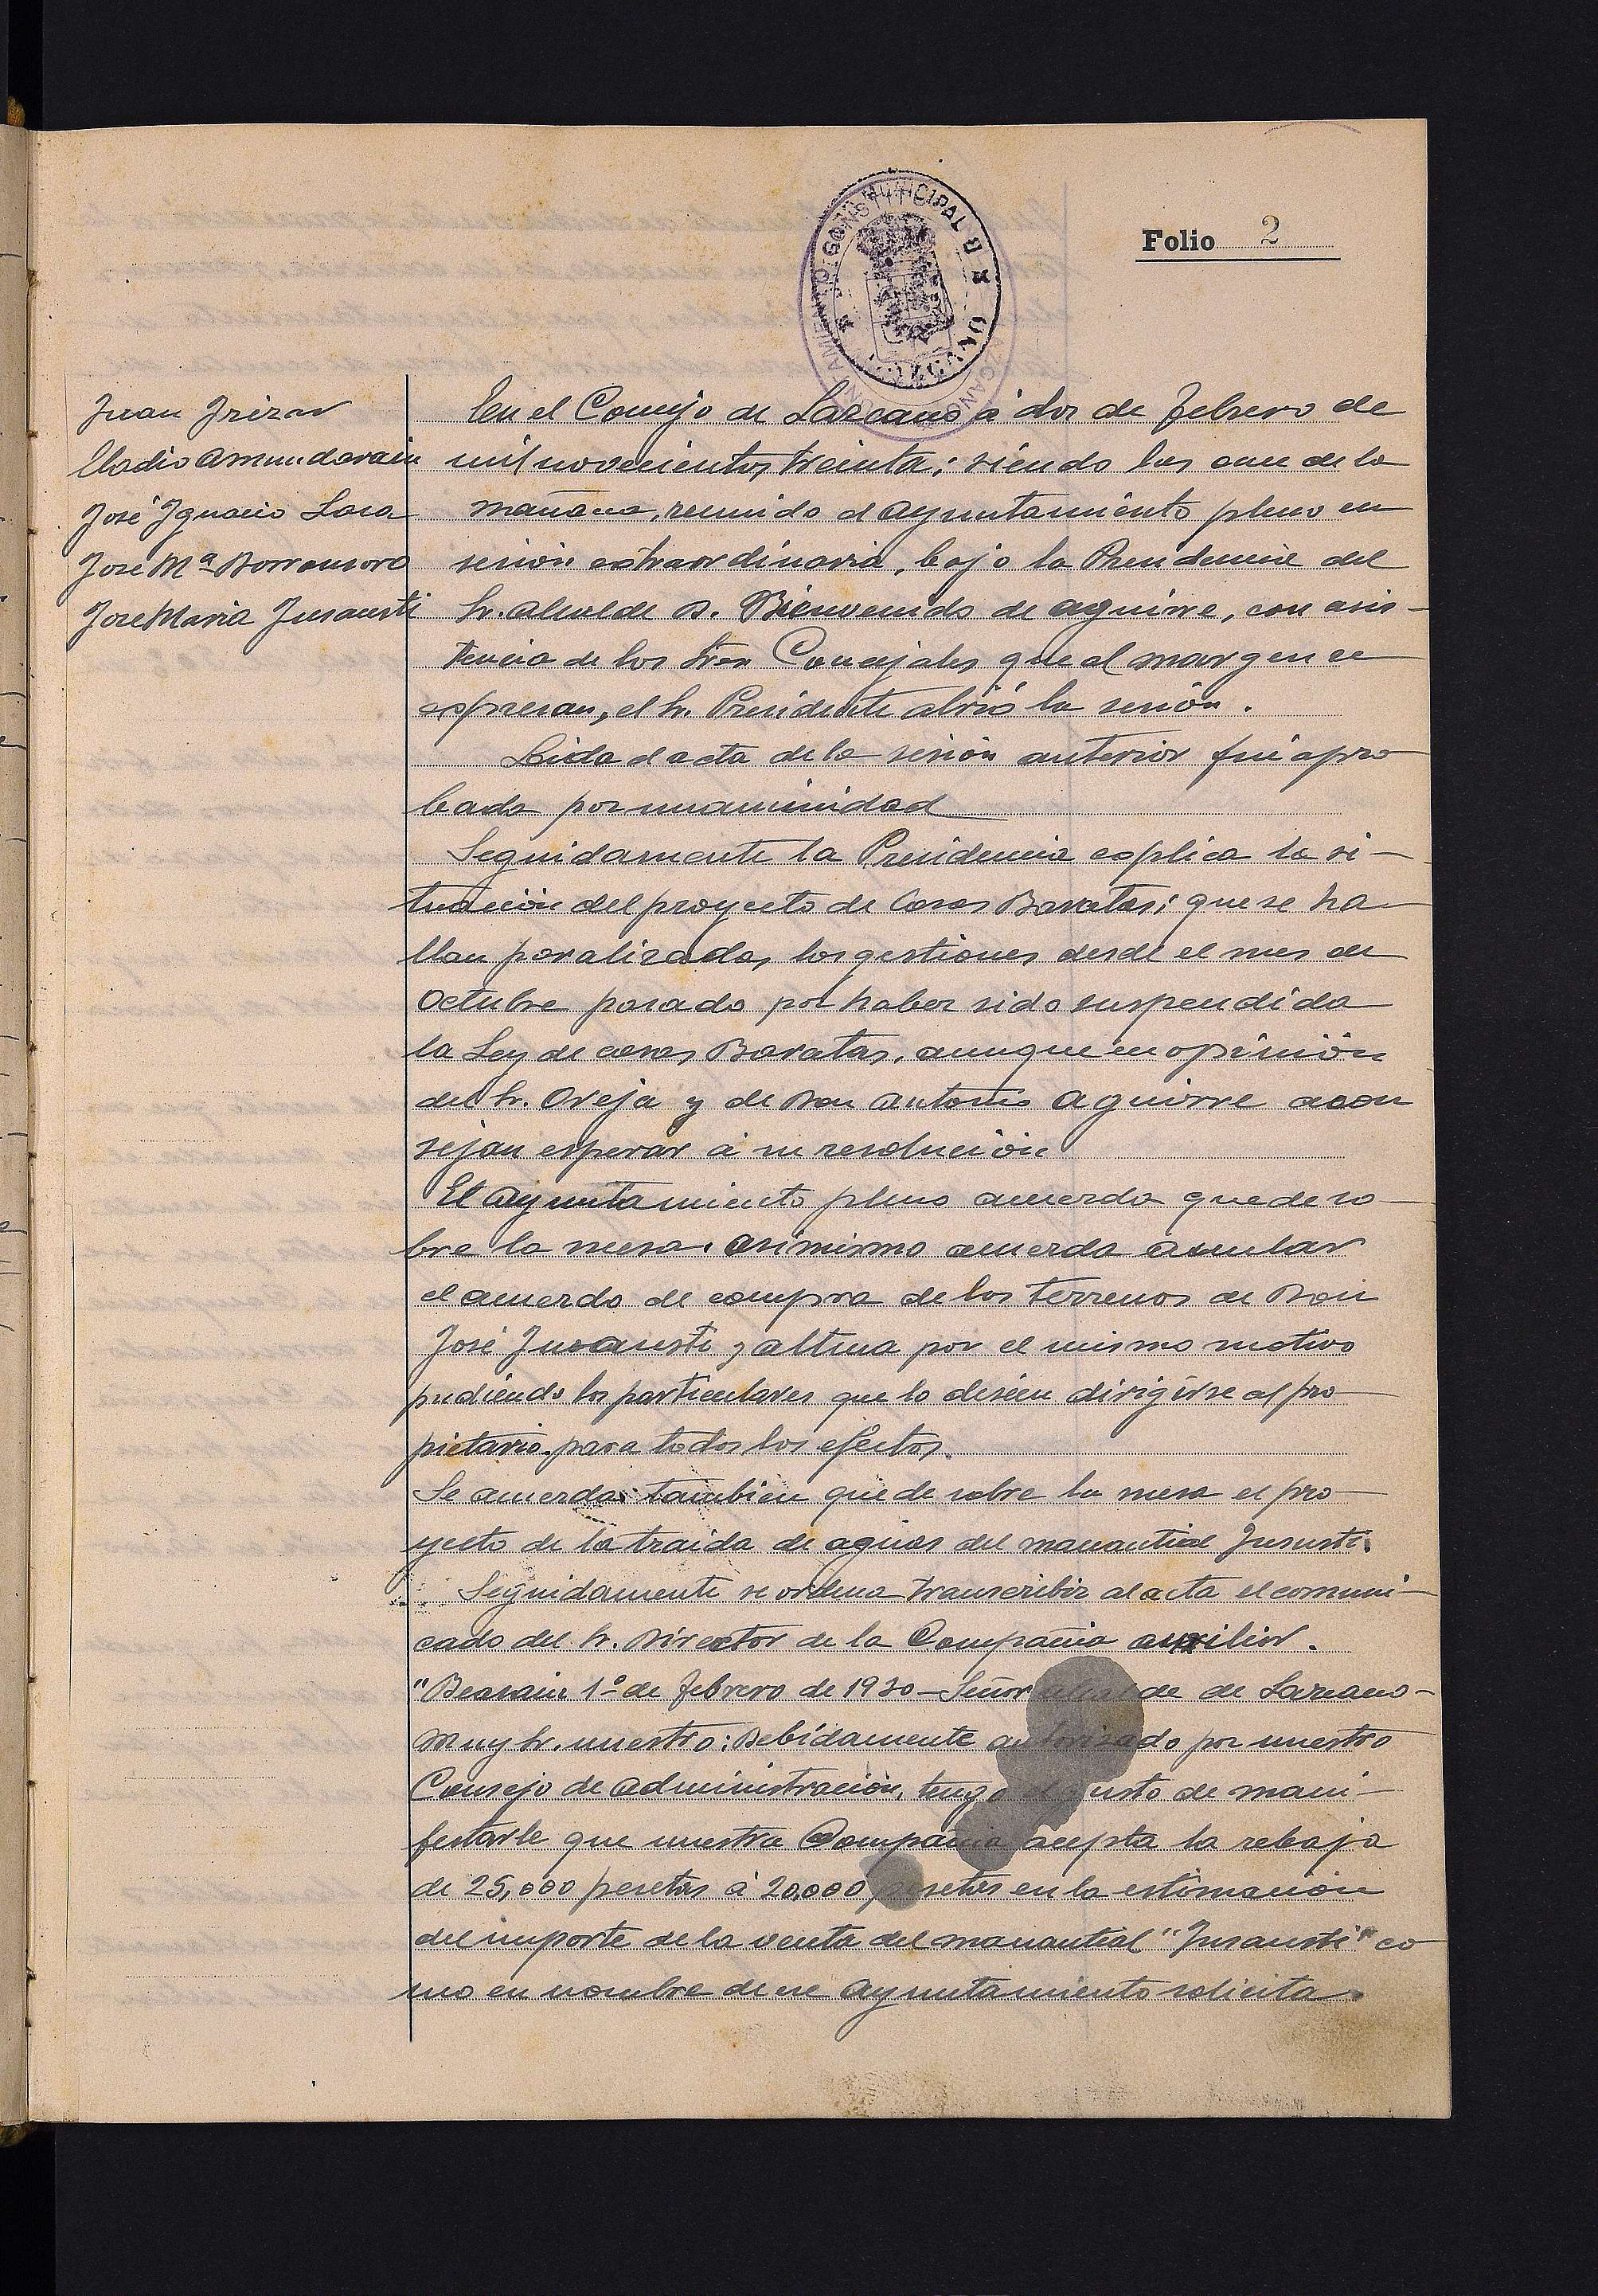 Folio 2
Juan Irizar
Eladio Amundarain
José Ignacio Lasa
José Mª Dorronsoro
Jose Maria Insausti
En el Concejo de Lazcano á dos de febrero de
mil novecientos treinta; siendo las once de la
mañana, reunido el Ayuntamiento pleno en
sesión extraordinaria, bajo la Presidencia del
Sr. Alcalde D. Bienvenido de Aguirre, con asis-
tencia de los Sres Concejales que al margen se
expresan, el Sr. Presidente abrió la sesión.
Leida el acta de la sesión anterior fué apro
bada por unanimidad
Seguidamente la Presidencia explica la si-
tuación del proyecto de Casas Baratas; que se ha
llan paralizadas las gestiones desde el mes de
Octubre pasado por haber sido suspendida
la Ley de casas Baratas, aunque en opinión
del Sr. Oreja y de Don Antonio Aguirre acon
sejan esperar á su resolución
El Ayuntamiento pleno acuerda quede so-
bre la mesa. Asimismo acuerda anular
el acuerdo de compra de los terrenos de Don
José Insausti y Altuna por el mismo motivo
pudiendo los particulares que lo deseen dirigirse al pro
pietario para todos los efectos.
Se acuerda también quede sobre la mesa el pro-
yecto de la traida de aguas del manantial Insusti.
Seguidamente se ordena transcribir al acta el comuni-
cado del Sr. Director de la Compañia auxiliar.
"Beasain 1º de febrero de 1930 - Señor Alcalde de Lazcano -
Muy Sr. nuestro: Debidamente autorizado por nuestro
Consejo de Administración, tengo el gusto de mani-
festarle que nuestra Compañia acepta la rebaja
de 25,000 pesetas á 20,000 pesetas en la estimación
del importe de la venta del manantial "Insausti" co
mo en nombre de ese Ayuntamiento solicita